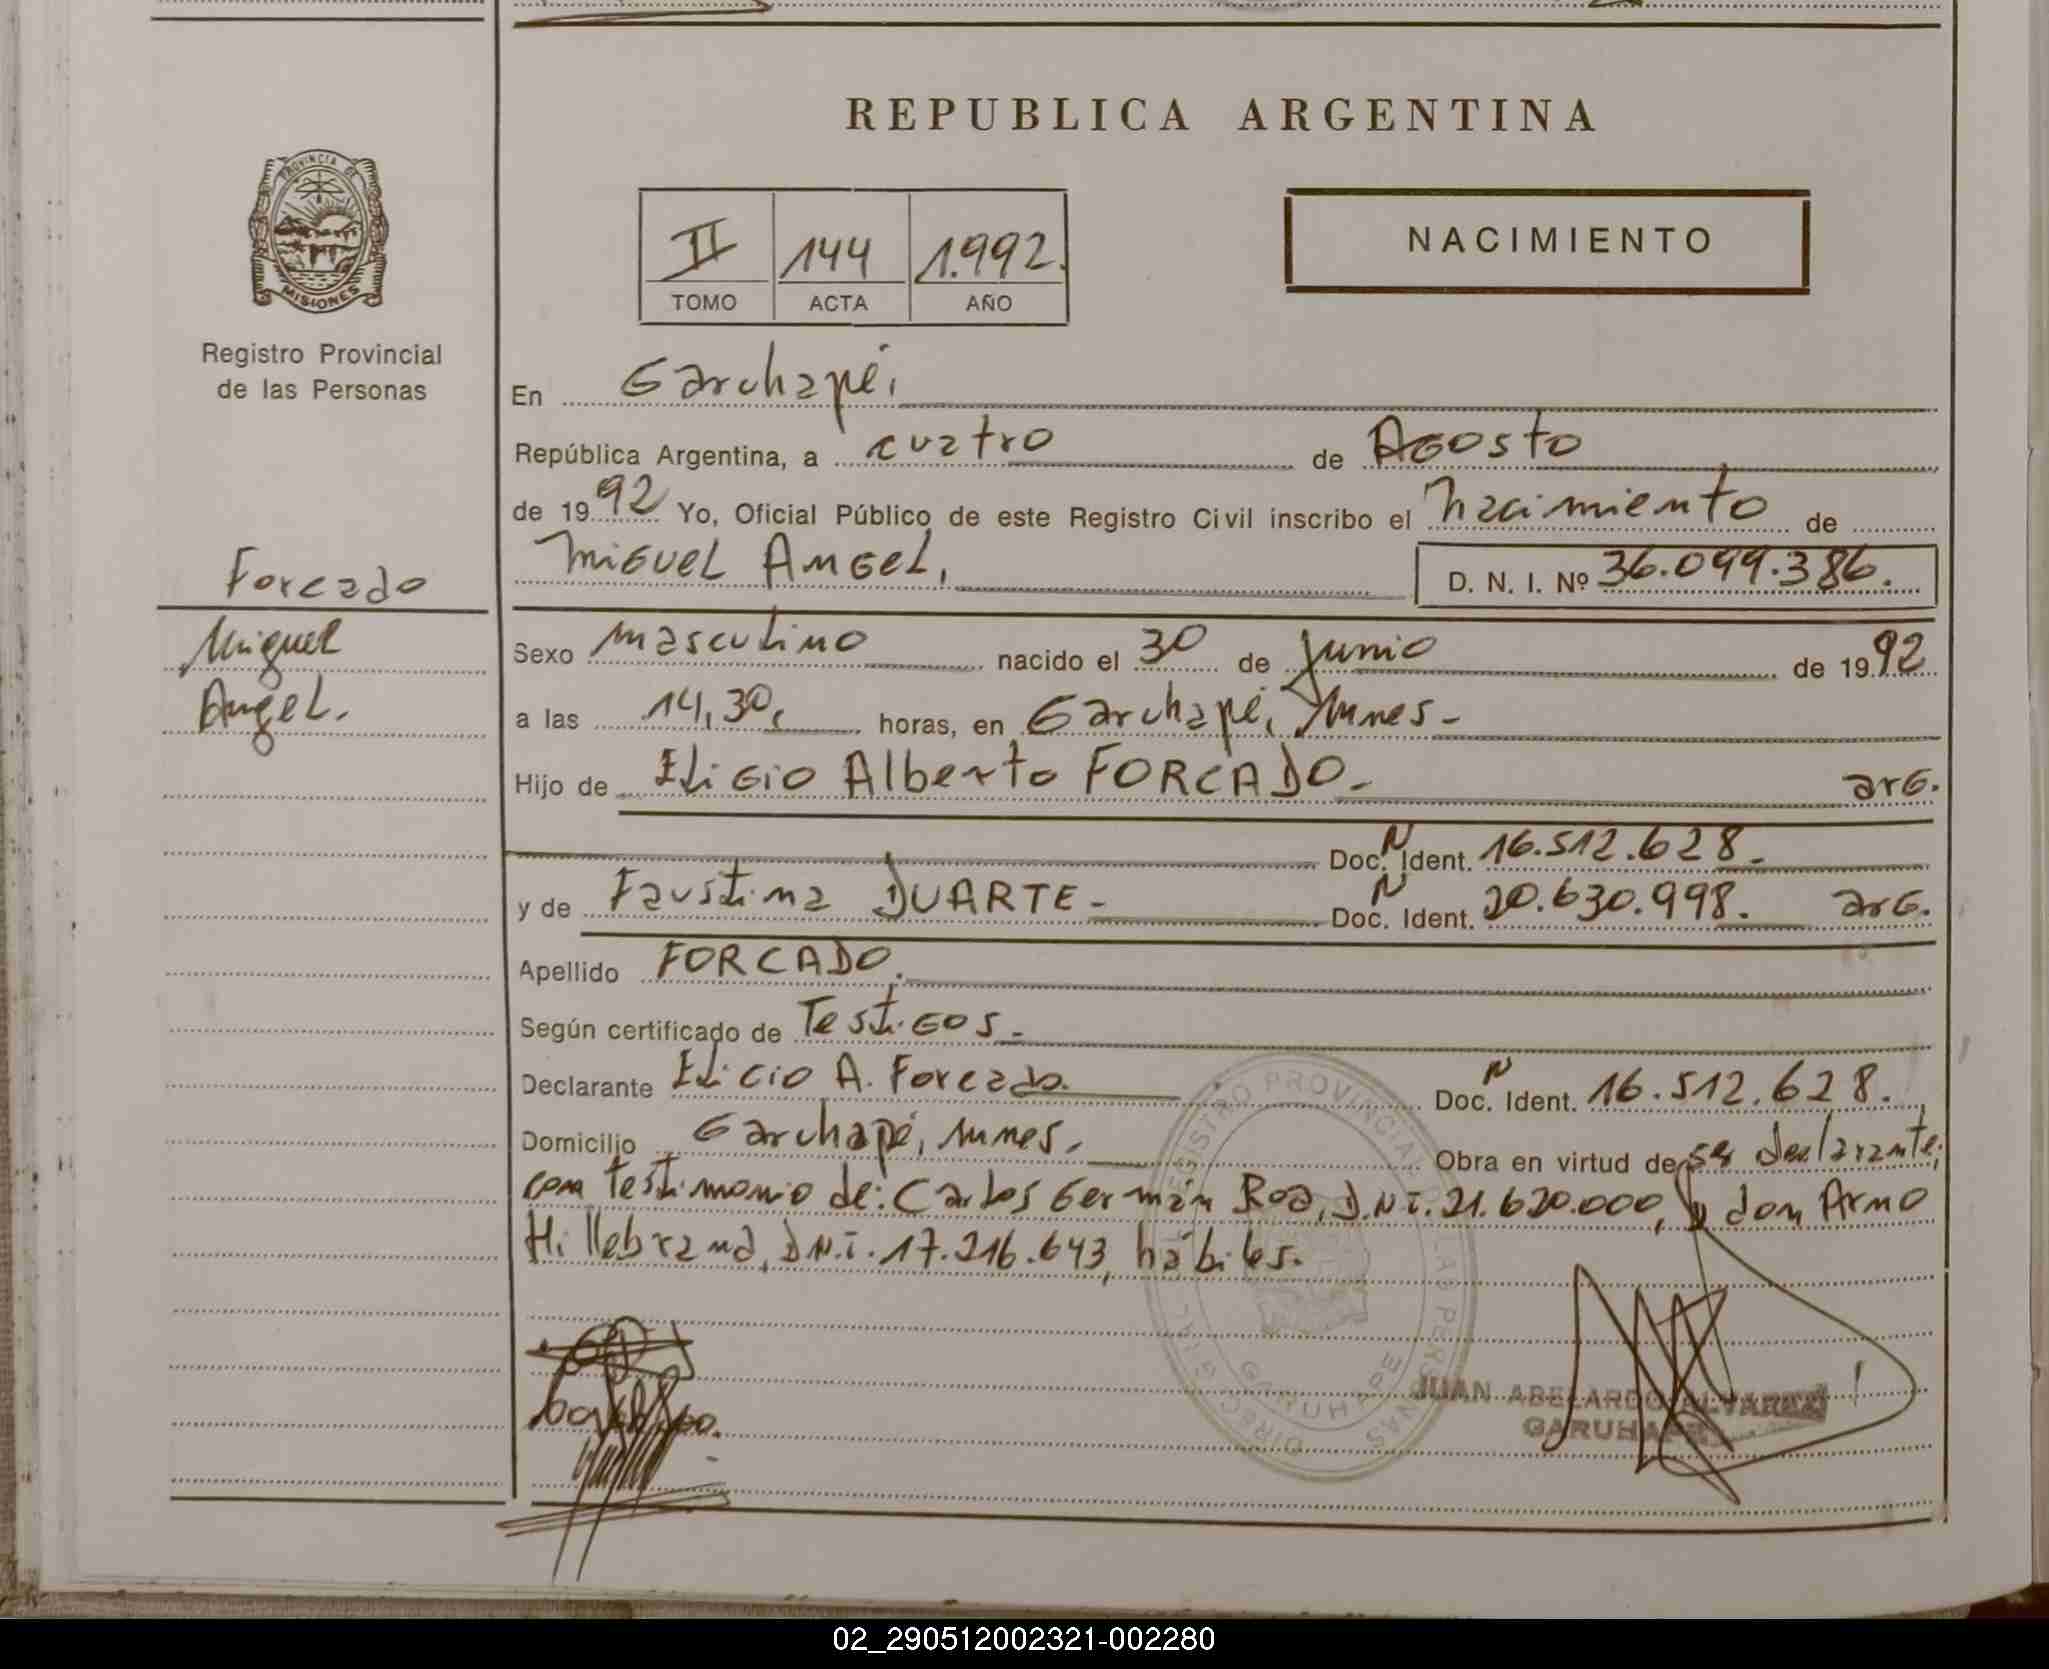 REPUBLICA ARGENTINA
PROVINCIA DE
MISIONES
Registro Provincial
de las Personas
II 144 1.992.
TOMO ACTA AÑO
NACIMIENTO
En Garuhapé,
República Argentina, a cuatro de Agosto
de 1992 Yo, Oficial Público de este Registro Civil inscribo el nacimiento de
Miguel Angel, D. N. I. Nº 36.099.386.
Forcado
Miguel
Angel.
Sexo masculino nacido el 30 de junio de 1992
a las 14,30, horas, en Garuhapé, Mnes-
Hijo de Eligio Alberto FORCADO.- arg.
Doc. N Ident. 16.512.628.-
y de Faustina DUARTE- Doc. N Ident. 20.630.998. arg.
Apellido FORCADO.
Según certificado de Testigos.-
Declarante Eligio A. Forcado. Doc. N Ident. 16.512.628.
Domicilio Garuhapé, Mnes. Obra en virtud de ser declarante,
con testimonio de: Carlos Germán Roa, D.N.I. 21.620.000, y don Arno
Hillebrand, D.N.I. 17.216.643, hábiles.
REGISTRO PROVINCIAL DE LAS PERSONAS
GARUHAPE
JUAN ABELARDO ALVAREZ
GARUHAPE
02_290512002321-002280